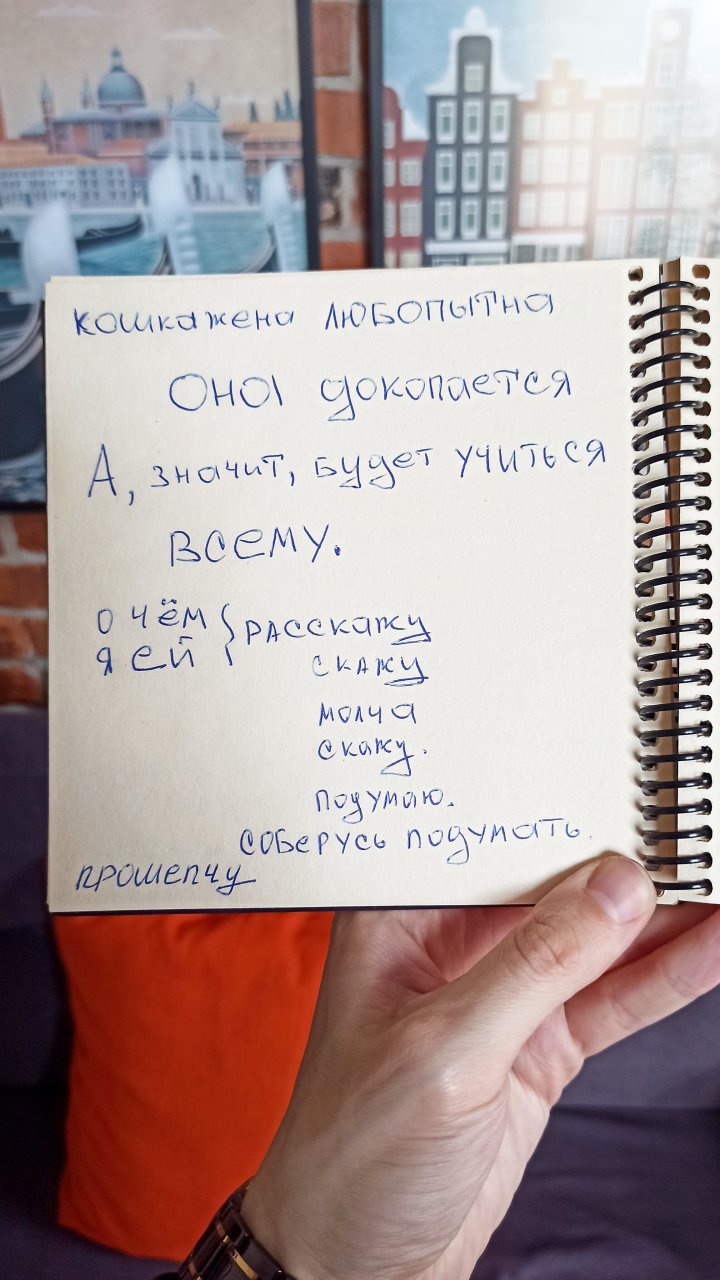 кошкажена любопытна
Она докопается
А, значит, будет учиться
всему.
о чём } расскажу
я ей
скажу
молча
скажу.
подумаю.
соберусь подумать.
прошепчу